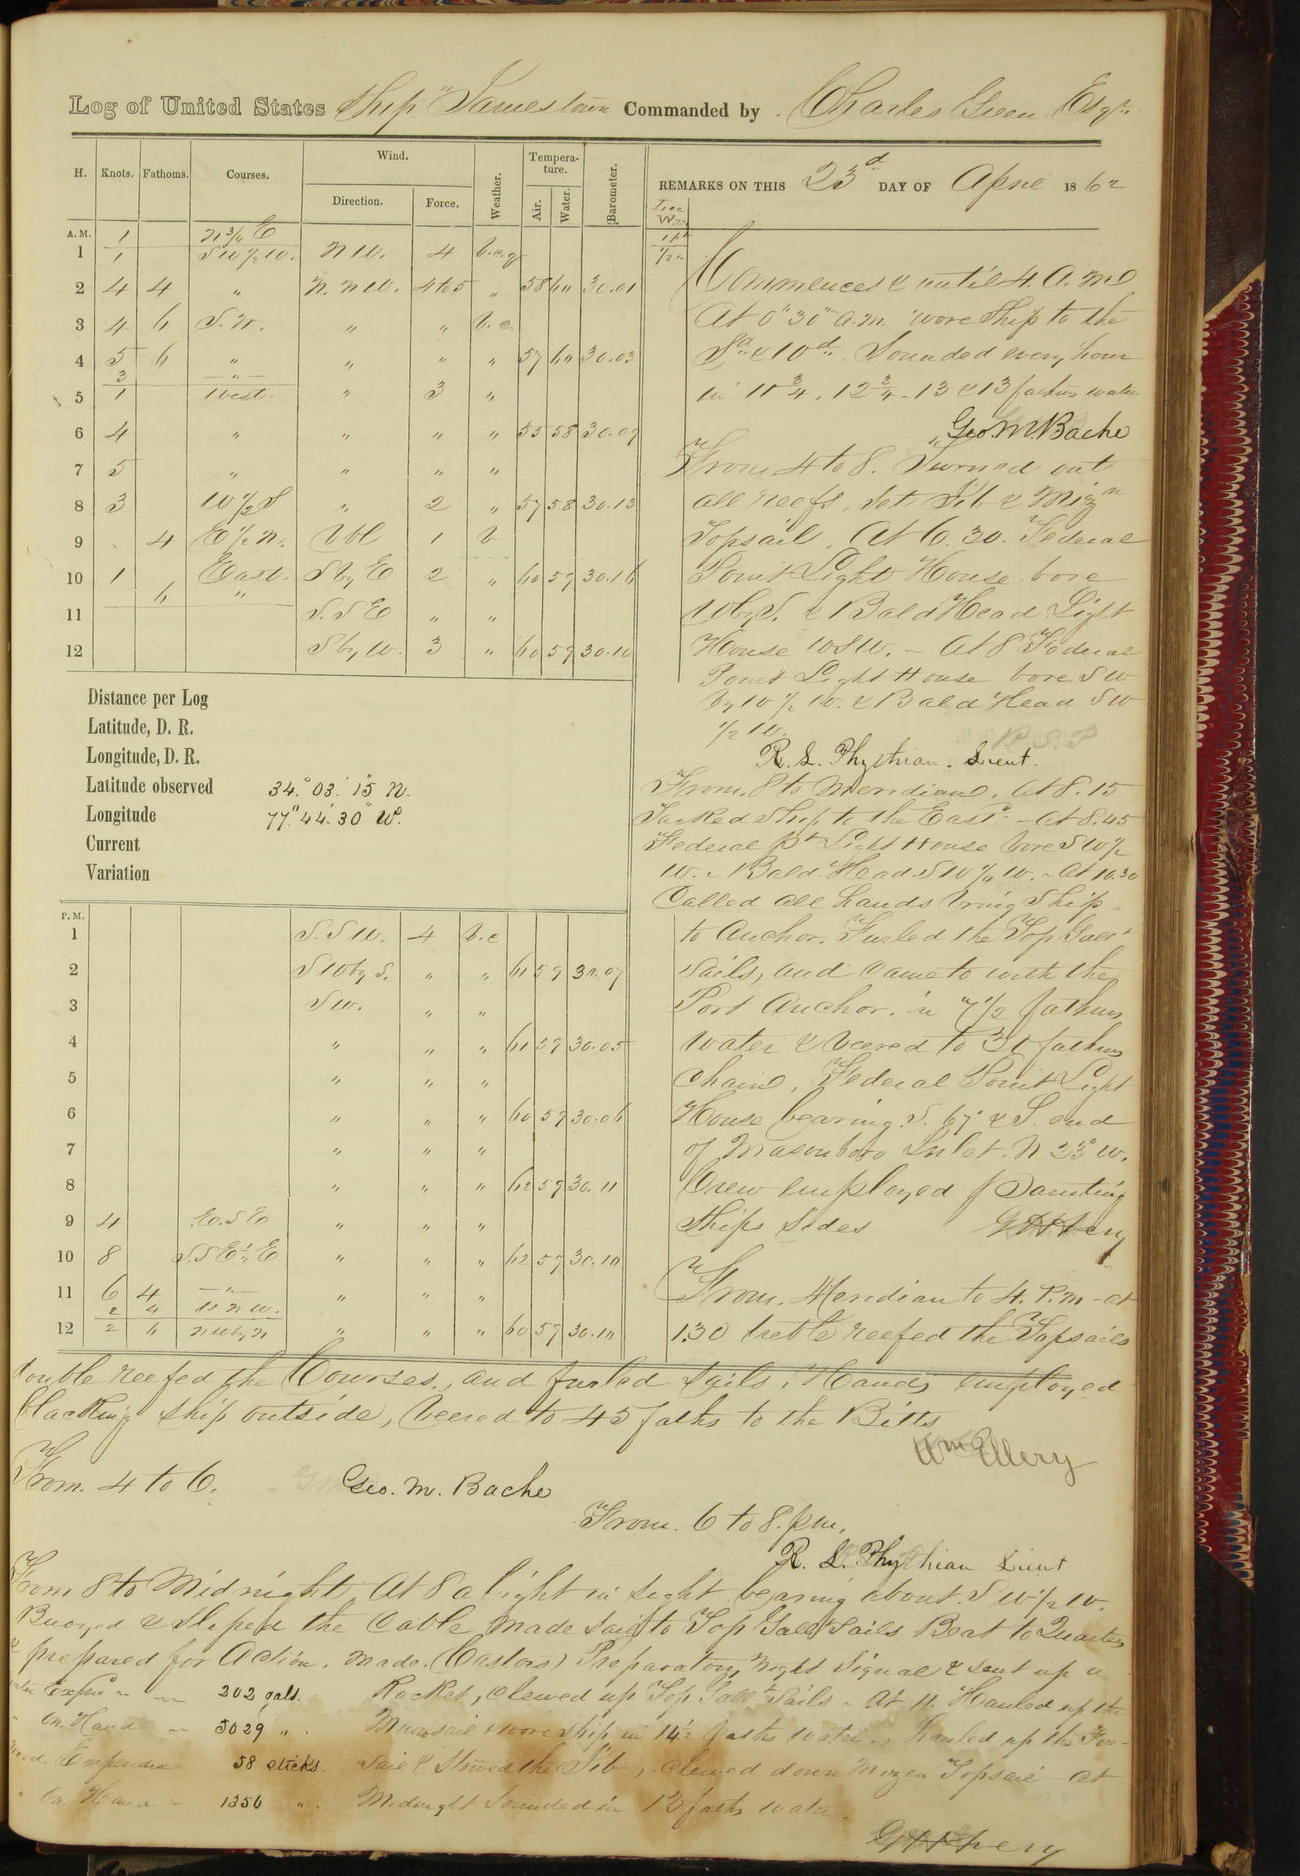 Log of United States Ship "Jamestown Commanded by Charles Green Esqr.
H. Knots. Fathoms. Courses. Wind. Direction. Force. Weather. Tempera-ture. Air. Water. Barometer.
REMARKS ON THIS 23d DAY OF April 1862
A.M. 1 N 3/4 E
1 1 SW 1/2 W. N W. 4 b.c.q
2 4 4 " N. N W. 4 to 5 " 58 60 30.01
3 4 6 S.W. " " b.c.
4 5 6 " " " " 57 60 30.03
3 "
5 1 West. " 3 "
6 4 " " " " 55 58 30.09
7 5 " " " "
8 3 W 1/2 S " 2 " 57 58 30.13
9 4 E 1/2 N. Vbl 1 b
10 1 East. S by E 2 " 60 59 30.16
6 "
11 S.S E " "
12 S by W. 3 " 60 59 30.10
Commences & until 4 A.M.
At 0h 30m a.m. wore ship to the
Sd & Wd. Sounded every hour
in 11 3/4, 12 3/4 - 13 & 13 faths water
Geo. M. Bache
From 4 to 8. Turned out
all reefs, set Jib & Mizn
Topsail. At 6.30. Federal
Point Light House bore
W by S. & Bald Head Light
House WSW. - At 8 Federal
Point Light House bore SW
by W 1/2 W. & Bald Head SW
1/2 W.
R. L. Phythian. Lieut.
Distance per Log
Latitude, D. R.
Longitude, D. R.
Latitude observed 34° 03' 15" N.
Longitude 77° 44' 30" W.
Current
Variation
From 8 to Meridian. At 8.15
Tacked Ship to the Eastd. - At 8.45
Federal Pt Light House bore SW 1/2
W. Bald Head SW 1/4 W. - At 10.30
Called all hands bring Ship
to Anchor. Furled the Top Gallt
Sails, and came to with the
Port Anchor. in 7 1/2 fathms
water & veered to 30 fathms
chain, Federal Point Light
House bearing S. 67° & S. end
of Masonboro Inlet. N 23° W.
Crew employed painting
Ships sides
P.M.
1 S.S W. 4 b.c
2 SW by S. " " 61 59 30.07
3 SW. " "
4 " " " 61 59 30.05
5 " " "
6 " " " 60 59 30.06
7 " " "
8 " " " 62 59 30.11
9 4 E.S E " " "
10 8 S.S E 1/2 E " " " 62 59 30.10
11 6 4 " " " "
2 4 N N W.
12 2 6 NW by N " " " 60 57 30.10
From Meridian to 4. P.M - at
1.30 treble reefed the Topsails
double reefed the Courses, and furled sails. Hands employed
blacking ship outside, veered to 45 faths to the Bitts
Wm Ellery
From. 4 to 6. Geo. M. Bache
From. 6 to 8. pm.
R. L. Phythian Lieut
From 8 to Midnight. At 8 a light in sight bearing about SW 1/2 W.
Buoyed & sliped the Cable, made sail to Top Gallt Sails Beat to Quarters
& prepared for Action. Made (Costons) Preparatory Night Signal & sent up a
Rocket, clewed up Top Gallt Sails - At 11. Hauled up the
Mainsail & wore ship in 14 1/2 faths water, hauled up the Fore-
Sail & Stowed the Jib, clewed down Mizen Topsail - At
Midnight Sounded in 13 faths water.
Water Expend " " 202 galls.
" on Hand " 5029 "
Wood. Expended 58 sticks.
" on Hand " 1350 "